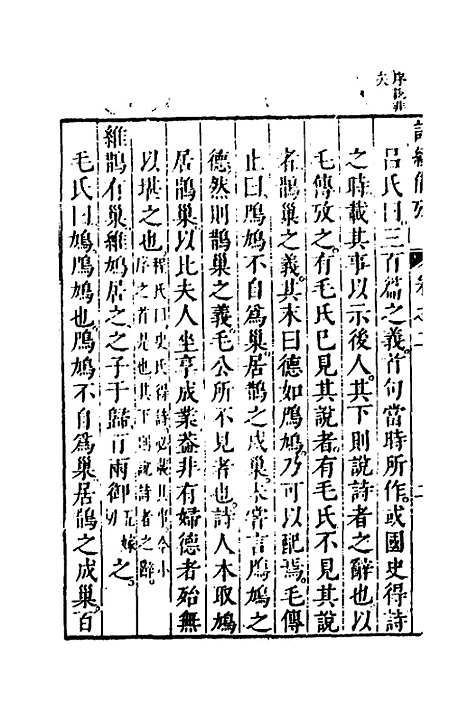 呂氏曰三百篇之義首句當時所作或國史得詩
之時載其事以示後人其下則說詩者之辭也以
毛傳攷之有毛氏已見其說者有毛氏不見其說
者鵲巢之義其末曰德如鳲鳩乃可以配焉毛傳
止曰鳲鳩不自爲巢居鵲之成巢未嘗言鳲鳩之
德然則鵲巢之義毛公所不見者也詩人本取鳩
居鵲巢以比夫人坐享成業蓋非有婦德者殆無
以堪之也程氏曰史氏得詩必載其事今小
序之首是也其下則說詩者之辭
維鵲有巢維鳩居之之子于歸百兩御五嫁
之
毛氏曰鳩鳲鳩也鳲鳩不自爲巢居鵲之成巢百